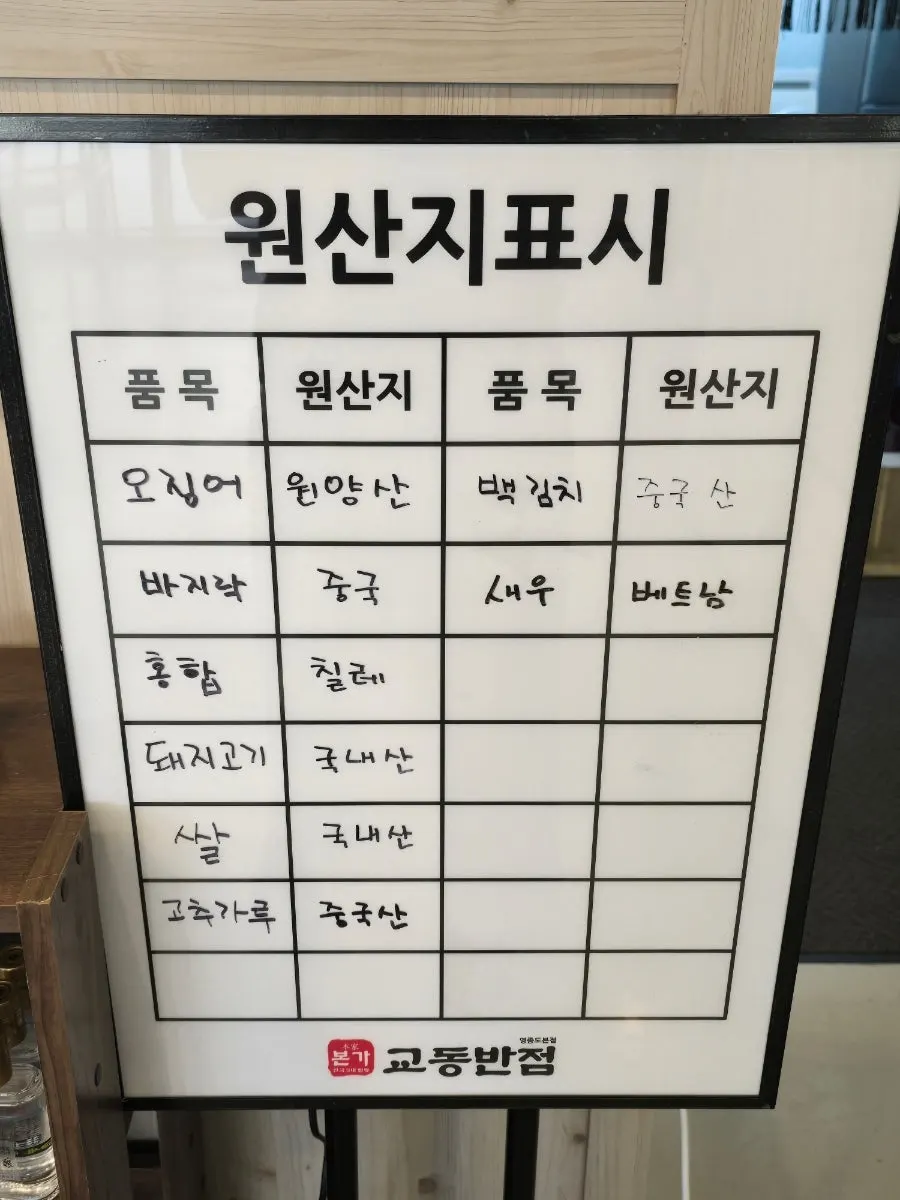 원산지표시
품목 원산지 품목 원산지
오징어 원양산 백김치 중국 산
바지락 중국 새우 베트남
홍합 칠레
돼지고기 국내산
쌀 국내산
고추가루 중국산
本家
본가
영종도본점
교동반점